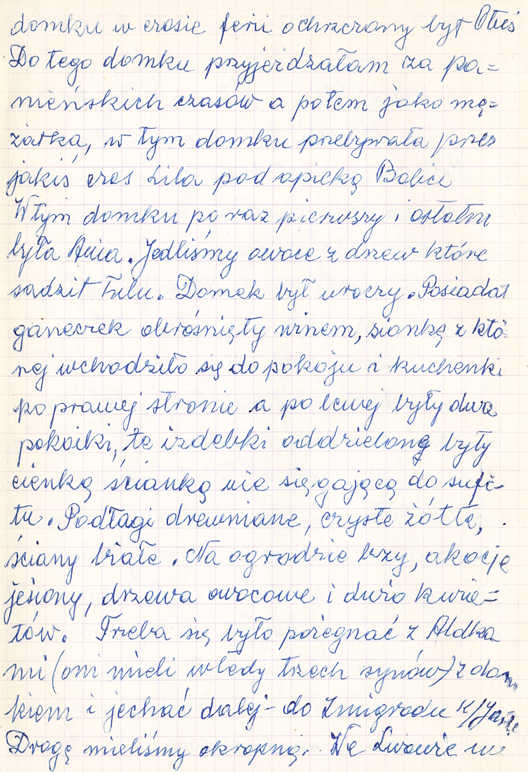 domku w czasie ferii ochrzczony był Oleś
Do tego domku przyjeżdżałam za pa=
nieńskich czasów a potem jako mę=
żatka, w tym domku przebywała przez
jakiś czas Lila pod opieką Babci
W tym domku po raz pierwszy i ostatni
była Ania. Jedliśmy owoce z drzew które
sadził Lulu. Domek był uroczy. Posiadał
ganeczek obrośnięty winem, sionkę z któ-
rej wchodziło się do pokoju i kuchenki
po prawej stronie a po lewej były dwa
pokoiki, te izdebki oddzielone były
cienką ścianką nie sięgającą do sufi-
tu. Podłagi drewniane, czyste żółte,
ściany białe. Na ogrodzie bzy, akacje
jesiony, drzewa owocowe i dużo kwia=
tów. Trzeba się było pożegnać z Aldka
mi (oni mieli wtedy trzech synów) z dom
kiem i jechać dalej - do Żmigrodu k/Jasła
Drogę mieliśmy okropną. We Lwowie